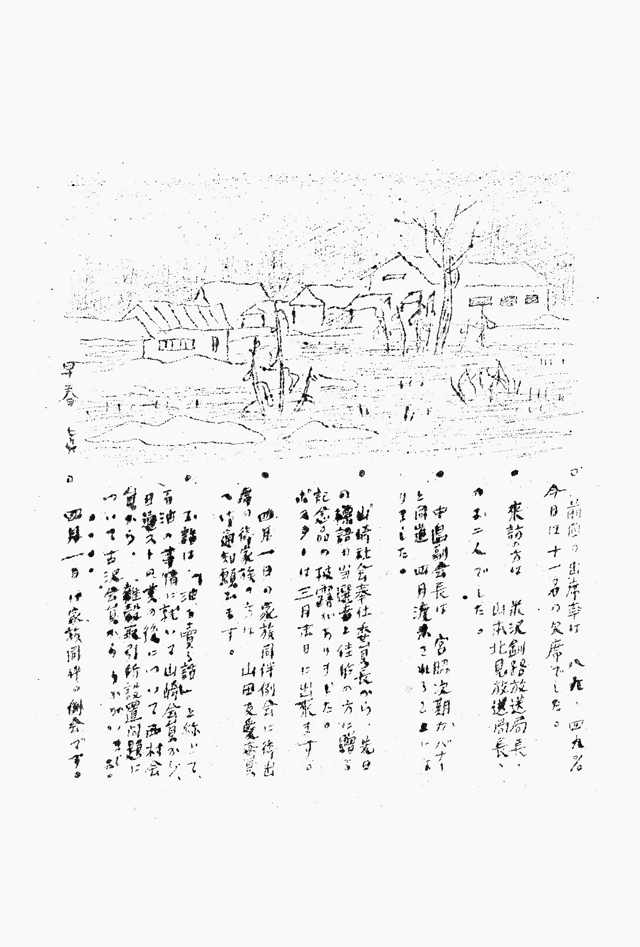 早春
前回の出席率は 八九、四九%
今日は十一名の欠席でした。
来訪の方は 米沢釧路放送局長、
山本北見放送局長、
のお二人でした。
中島副会長は 宮脇次期ガバナー
と同道 四月渡米されることにな
りました。
山崎社会奉仕委員長から、先日
の標語の当選者と佳作の方に贈る
記念品の披露がありました。
ポスターは三月末日に出来ます。
四月一日の家族同伴例会に御出
席の御家族の方は 山田親愛委員
へ御通知願います。
お話は、「油を売る話」と題いて、
石油の事情に就いて山崎会員から、
日通ストの其の後について西村会
員から、雑穀取引所設置問題に
ついて古沢会員からうかがいました。
四月一日は家族同伴の例会です。